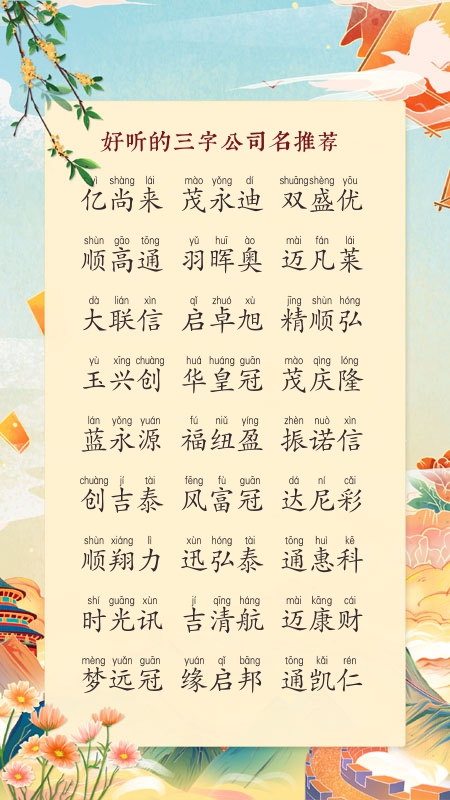 好听的三字公司名推荐
yì shàng lái mào yǒng dí shuāng shèng yōu
亿尚来 茂永迪 双盛优
shùn gāo tōng yǔ huī ào mài fán lái
顺高通 羽晖奥 迈凡莱
dà lián xìn qǐ zhuó xù jīng shùn hóng
大联信 启卓旭 精顺弘
yù xīng chuàng huá huáng guān mào qìng lóng
玉兴创 华皇冠 茂庆隆
lán yǒng yuán fú niǔ yíng zhèn nuò xìn
蓝永源 福纽盈 振诺信
chuàng jí tài fēng fù guān dá ní cǎi
创吉泰 风富冠 达尼彩
shùn xiáng lì xùn hóng tài tōng huì kē
顺翔力 迅弘泰 通惠科
shí guāng xùn jí qīng háng mài kāng cái
时光讯 吉清航 迈康财
mèng yuǎn guān yuán qǐ bāng tōng kǎi rén
梦远冠 缘启邦 通凯仁